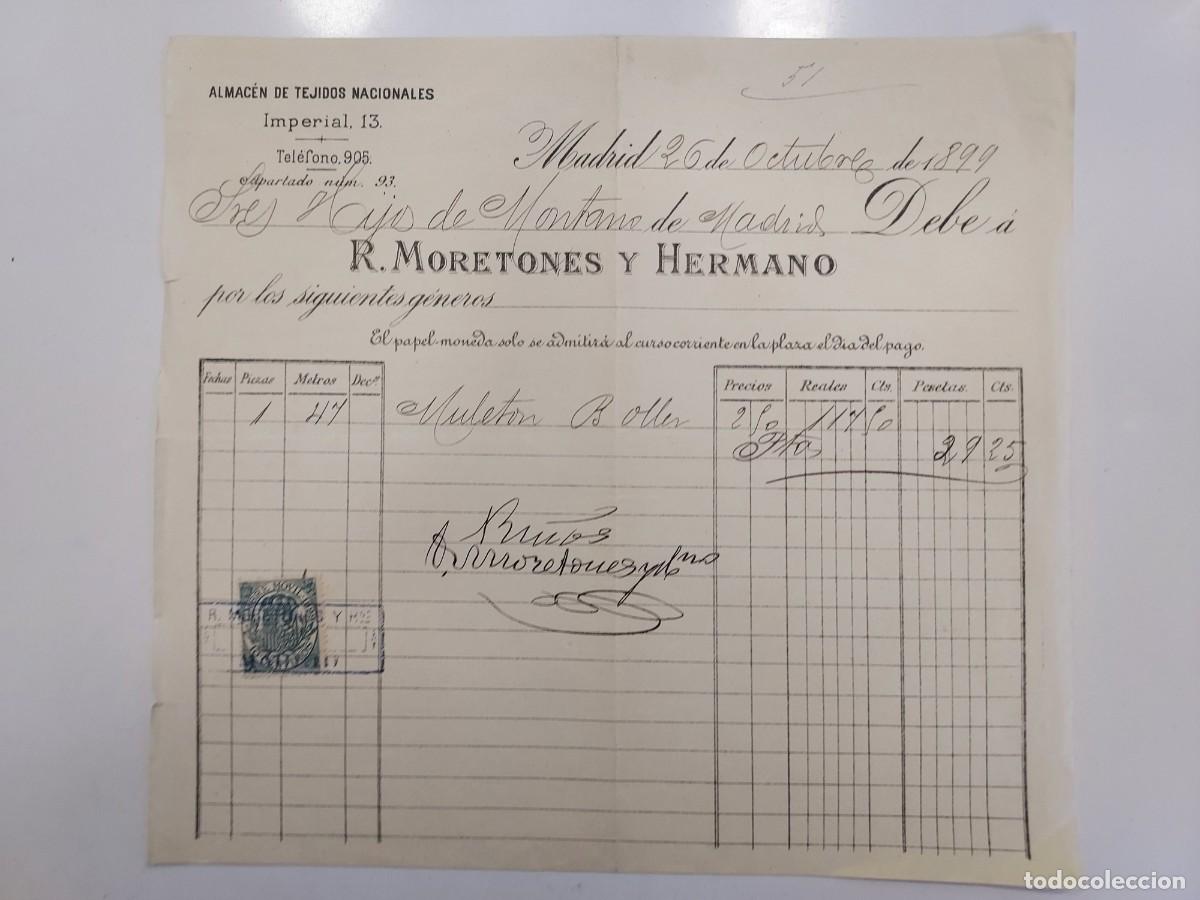 51
ALMACÉN DE TEJIDOS NACIONALES
Imperial, 13.
Teléfono, 905.
Apartado núm. 93.
Madrid 26 de Octubre de 1899
Sres Hijos de Montano de Madrid Debe á
R. MORETONES Y HERMANO
por los siguientes géneros
El papel-moneda solo se admitirá al curso corriente en la plaza el dia del pago.
Fechas Piezas Metros Dec.s Precios Reales Cts. Pesetas. Cts.
1 47 Muleton B 2 50 117 50
Ptas 29 25
R. Moretones y Hno
R. MORETONES Y HNO
MOVIL
todocoleccion